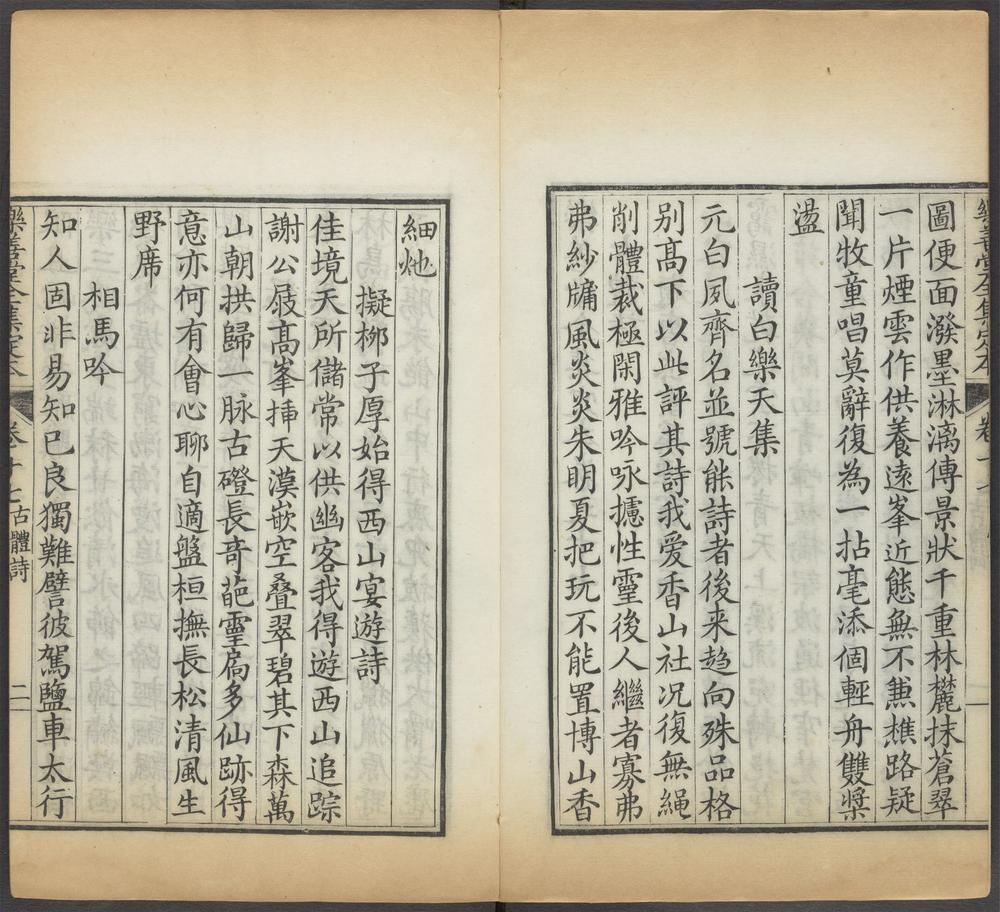 圖便面潑墨淋漓傳景狀千重林麓抹蒼翠
一片煙雲作供養遠峯近態無不兼樵路疑
聞牧童唱莫辭復為一拈毫添個輕舟雙槳
盪
讀白樂天集
元白夙齊名並號能詩者後来趋向殊品格
别高下以此評其詩我爱香山社况復無繩
削體裁極閑雅吟咏攄性靈後人繼者寡弗
弗紗牗風炎炎朱明夏把玩不能置博山香
細灺
擬栁子厚始得西山宴遊詩
佳境天所儲常以供幽客我得遊西山追踪
謝公屐高峯揷天漠嵌空叠翠碧其下森萬
山朝拱歸一脉古磴長竒葩靈扄多仙跡得
意亦何有會心聊自適盤桓撫長松清風生
野席
相馬吟
知人固非易知已良獨難譬彼駕鹽車太行
樂善堂全集定本 卷十七 古體詩 二